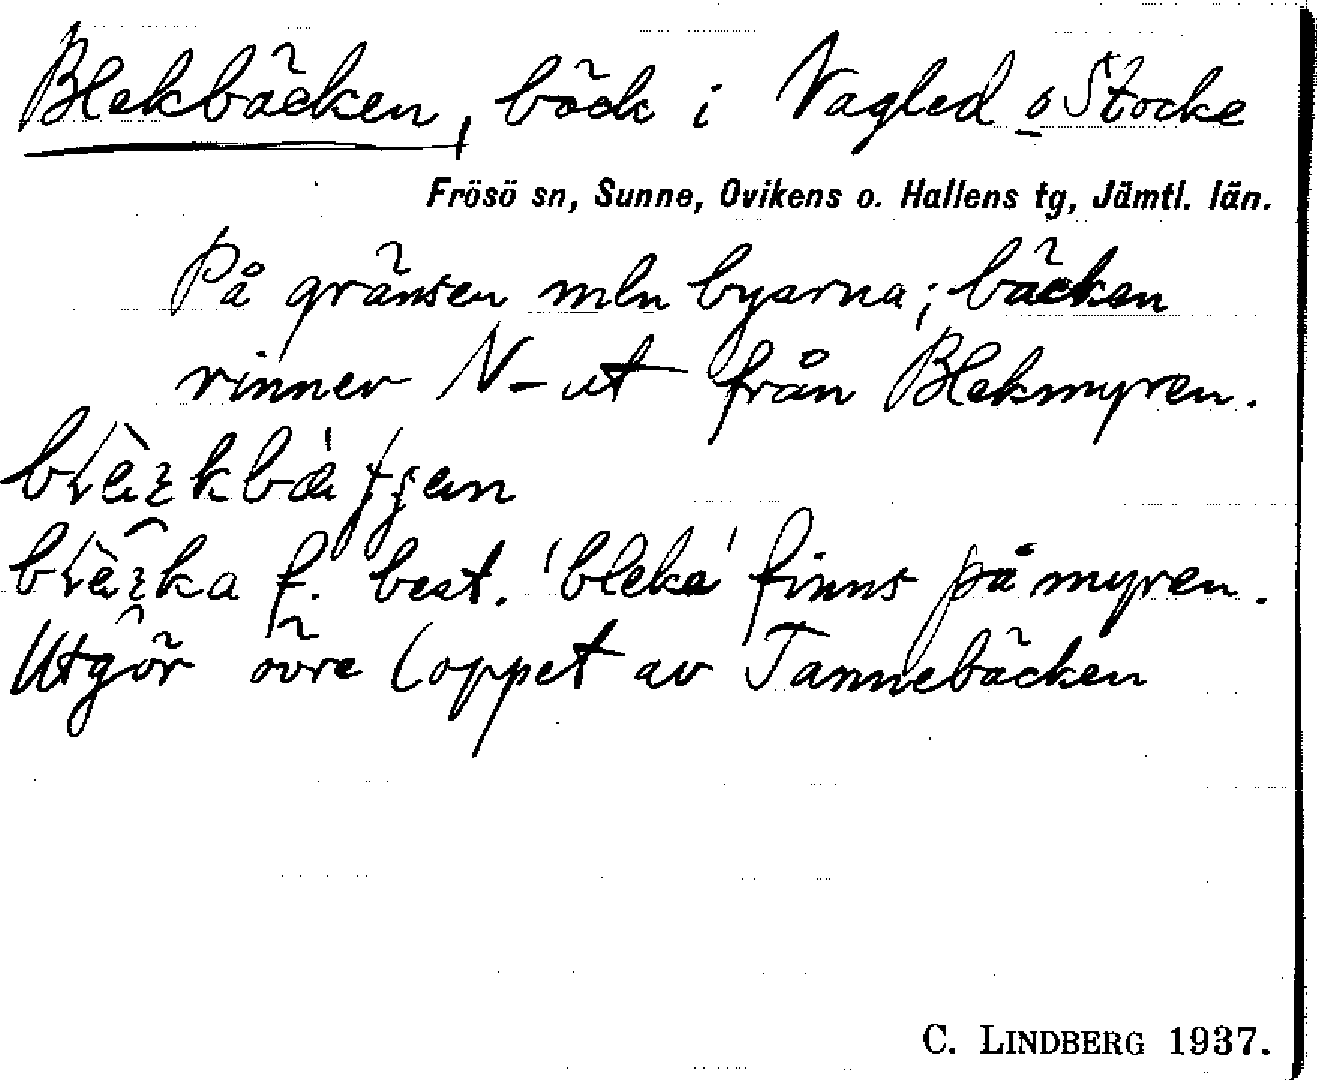 Blekbäcken, bäck i Vagled o Stocke
Frösö sn, Sunne, Ovikens o. Hallens tg, Jämtl. län.
På gränsen mln byarna; bäcken
rinner N-ut från Blekmyren.
f. best. 'bleka' finns på myren.
Utgör övre loppet av Tannebäcken
C. LINDBERG 1937.